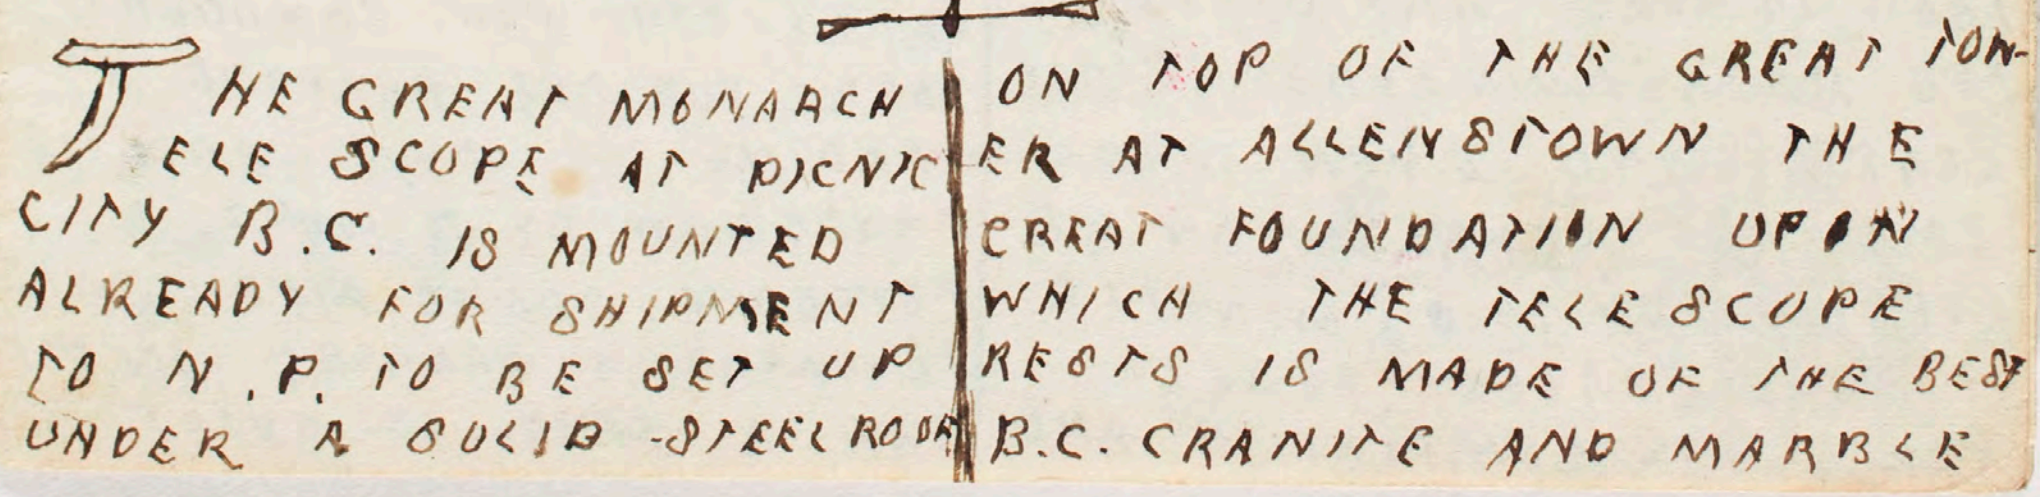 THE GREAT MONARCH
ELE SCOPE AT PICNIC
CITY B.C. IS MOUNTED
ALREADY FOR SHIPMENT
TO N.P. TO BE SET UP
UNDER A SOLID -STEEL ROOF
ON TOP OF THE GREAT TOW-
ER AT ALLENSTOWN THE
GREAT FOUNDATION UPON
WHICH THE TELESCOPE
RESTS IS MADE OF THE BEST
B.C. GRANITE AND MARBLE